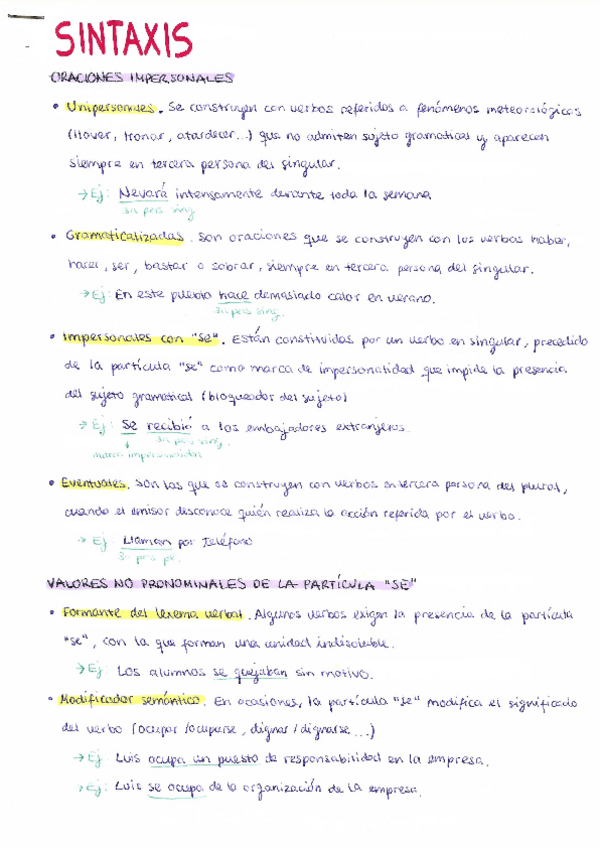 SINTAXIS
ORACIONES IMPERSONALES
• Unipersonales. Se construyen con verbos referidos a fenómenos meteorológicos
(llover, tronar, atardecer...) que no admiten sujeto gramatical y aparecen
siempre en tercera persona del singular.
→ Ej: Nevará intensamente durante toda la semana.
3ª pers sing
• Gramaticalizadas. Son oraciones que se construyen con los verbos haber,
hacer, ser, bastar o sobrar, siempre en tercera persona del singular.
→ Ej: En este pueblo hace demasiado calor en verano.
3ª pers sing.
• Impersonales con "se". Están constituidas por un verbo en singular, precedido
de la partícula "se" como marca de impersonalidad que impide la presencia
del sujeto gramatical (bloqueador del sujeto)
→ Ej: Se recibió a los embajadores extranjeros.
3ª pers sing.
marca impersonalidad
• Eventuales. Son las que se construyen con verbos en tercera persona del plural,
cuando el emisor desconoce quién realiza la acción referida por el verbo.
→ Ej: Llaman por teléfono
3ª pers pl.
VALORES NO PRONOMINALES DE LA PARTÍCULA "SE"
• Formante del lexema verbal. Algunos verbos exigen la presencia de la partícula
"se", con la que forman una unidad indisoluble.
→ Ej: Los alumnos se quejaban sin motivo.
• Modificador semántico. En ocasiones, la partícula "se" modifica el significado
del verbo (ocupar/ocuparse, dignar/dignarse...)
→ Ej: Luis ocupa un puesto de responsabilidad en la empresa.
→ Ej: Luis se ocupa de la organización de la empresa.